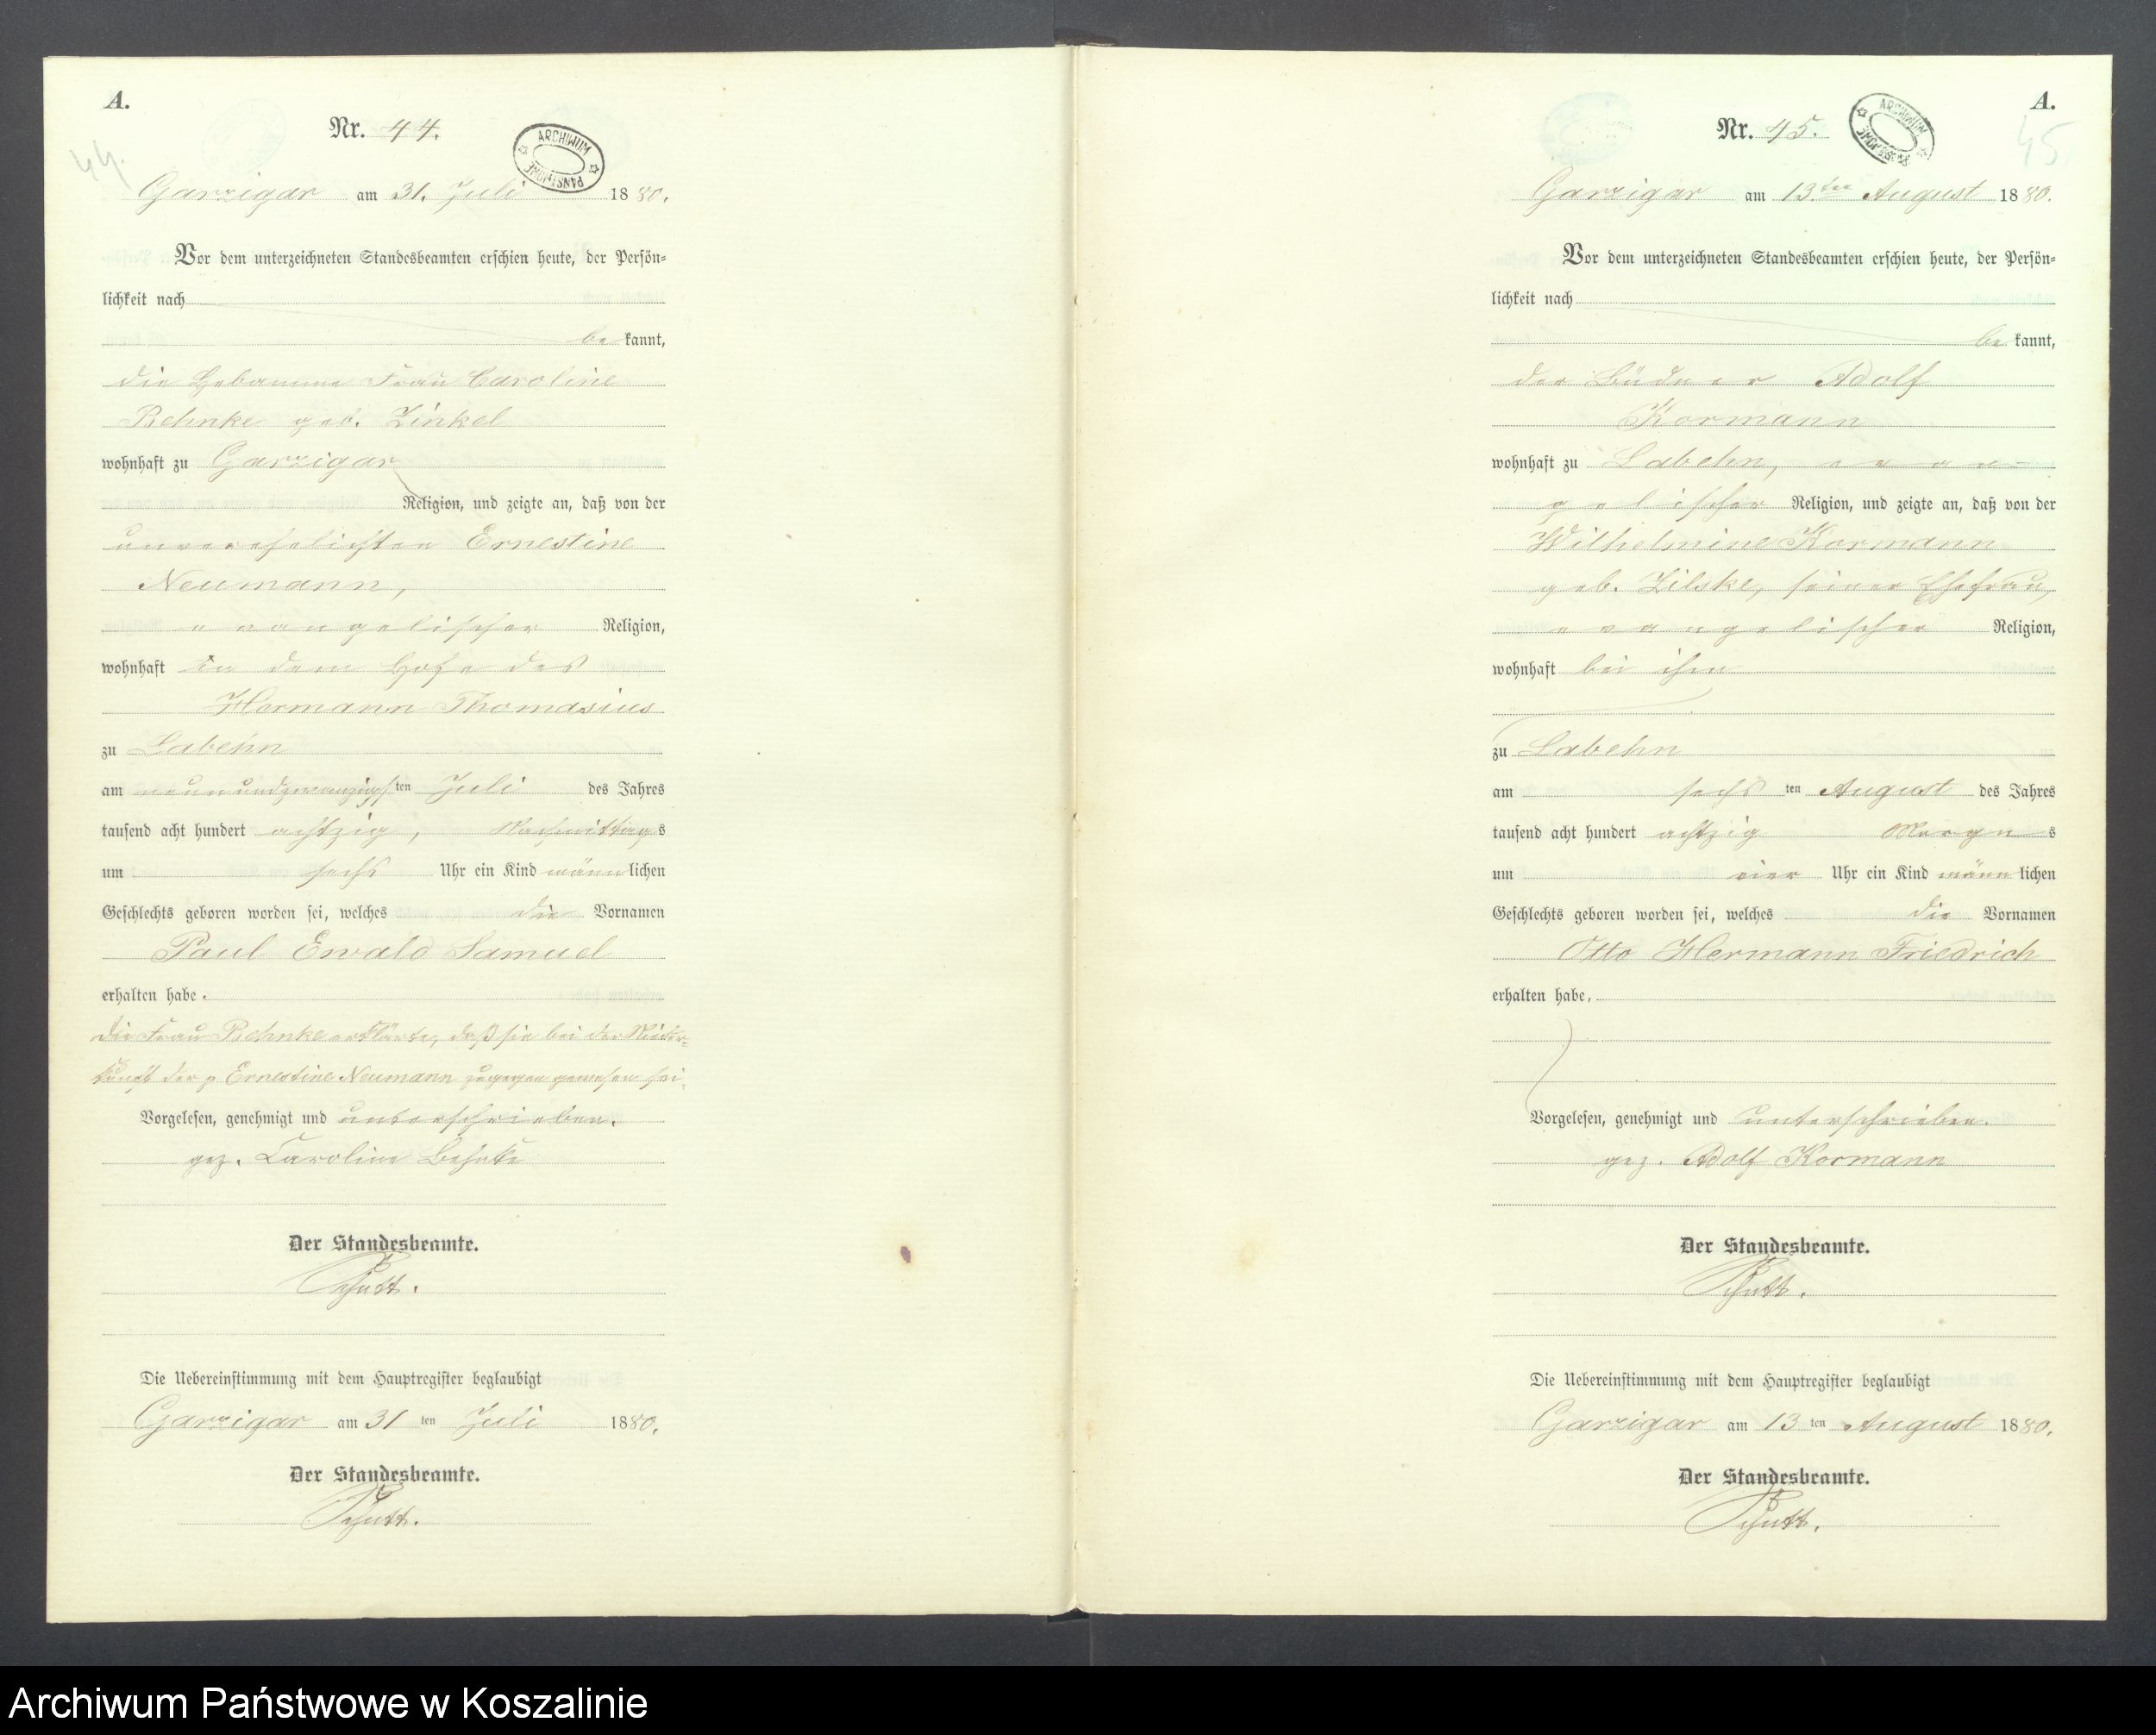 A.
44.
Nr. 44.
ARCHIWUM PAŃSTWOWE
Garzigar am 31. Juli 1880.
Vor dem unterzeichneten Standesbeamten erschien heute, der Persön-
lichkeit nach
be kannt,
die Hebamme Frau Caroline
Behnke geb. Zinkel
wohnhaft zu Garzigar
Religion, und zeigte an, daß von der
unverehelichten Ernestine
Neumann,
evangelischer Religion,
wohnhaft in dem Hofe des
Hermann Thomasius
zu Labehn
am neunundzwanzigsten Juli des Jahres
tausend acht hundert achtzig, Nachmittags
um sechs Uhr ein Kind männlichen
Geschlechts geboren worden sei, welches die Vornamen
Paul Ewald Samuel
erhalten habe.
Die Frau Behnke erklärte, daß sie bei der Nieder-
kunft der p Ernestine Neumann zugegen gewesen sei.
Vorgelesen, genehmigt und unterschrieben.
gez. Caroline Behnke
Der Standesbeamte.
Schutt.
Die Uebereinstimmung mit dem Hauptregister beglaubigt
Garzigar am 31 ten Juli 1880.
Der Standesbeamte.
Schutt.
A.
45
Nr. 45.
ARCHIWUM PAŃSTWOWE
Garzigar am 13.ten August 1880.
Vor dem unterzeichneten Standesbeamten erschien heute, der Persön-
lichkeit nach
be kannt,
der Büdner Adolf
Kormann
wohnhaft zu Labehn, evan-
gelischer Religion, und zeigte an, daß von der
Wilhelmine Kormann
geb. Zilske, seiner Ehefrau,
evangelischer Religion,
wohnhaft bei ihm
zu Labehn
am sechs ten August des Jahres
tausend acht hundert achtzig Morgens
um vier Uhr ein Kind männlichen
Geschlechts geboren worden sei, welches die Vornamen
Otto Hermann Friedrich
erhalten habe.
Vorgelesen, genehmigt und unterschrieben.
gez. Adolf Kormann
Der Standesbeamte.
Schutt.
Die Uebereinstimmung mit dem Hauptregister beglaubigt
Garzigar am 13 ten August 1880.
Der Standesbeamte.
Schutt.
Archiwum Państwowe w Koszalinie